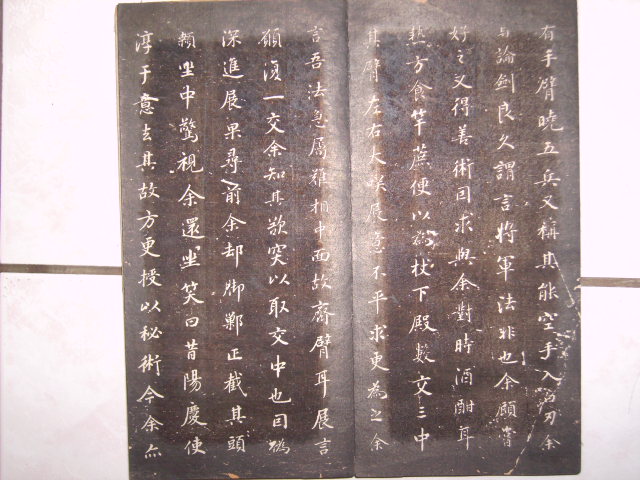 有手臂曉五兵又稱其能空手入白刃余
與論劍良久謂言將軍法非也余顧嘗
好之又得善術因求與余對時酒酣耳
熱方食竿蔗便以為杖下殿數交三中
其臂左右大咲展意不平求更為之余
言吾法急屬雖相中面故齊臂耳展言
願復一交余知其欲突以取交中也因偽
深進展果尋前余却脚鄛正截其顙
坐中驚視余還坐笑曰昔陽慶使
淳于意去其故方更授以秘術今余亦